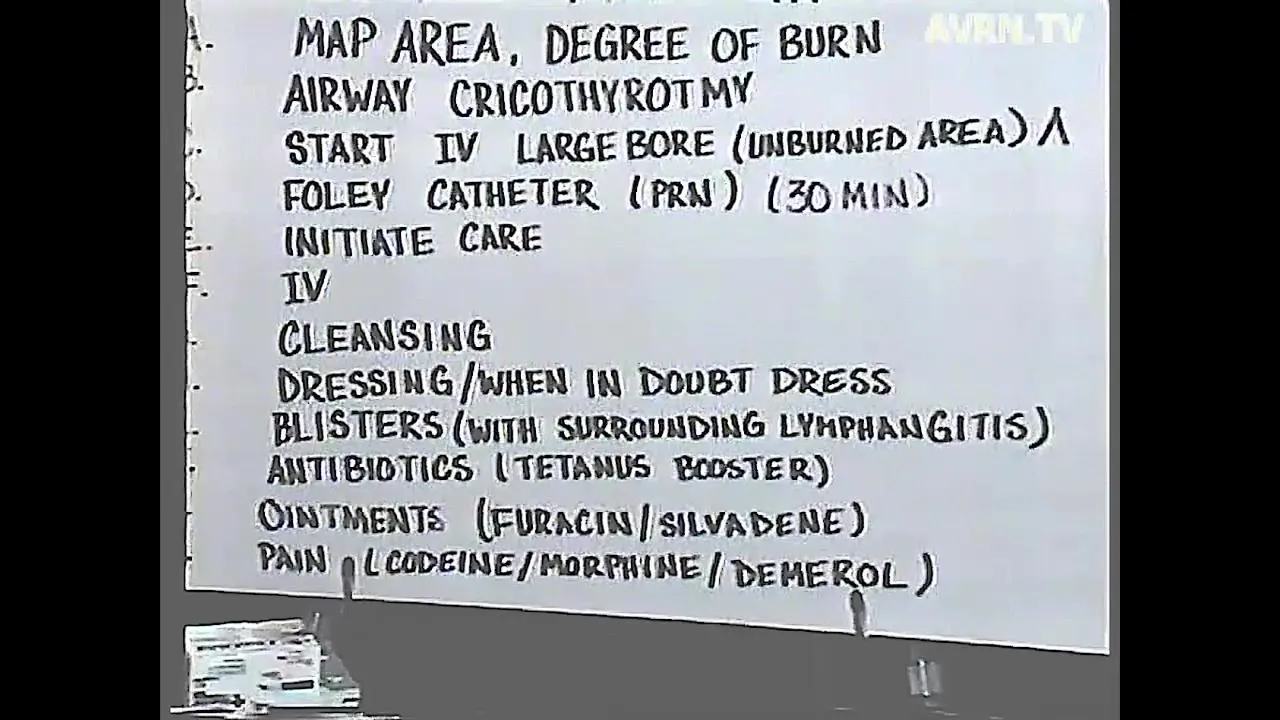 AVRN.TV
A. MAP AREA, DEGREE OF BURN
B. AIRWAY CRICOTHYROTMY
START IV LARGE BORE (UNBURNED AREA) Λ
D. FOLEY CATHETER (PRN) (30 MIN)
E. INITIATE CARE
F. IV
CLEANSING
DRESSING/WHEN IN DOUBT DRESS
BLISTERS (WITH SURROUNDING LYMPHANGITIS)
ANTIBIOTICS (TETANUS BOOSTER)
OINTMENTS (FURACIN/SILVADENE)
PAIN (CODEINE/MORPHINE/DEMEROL)